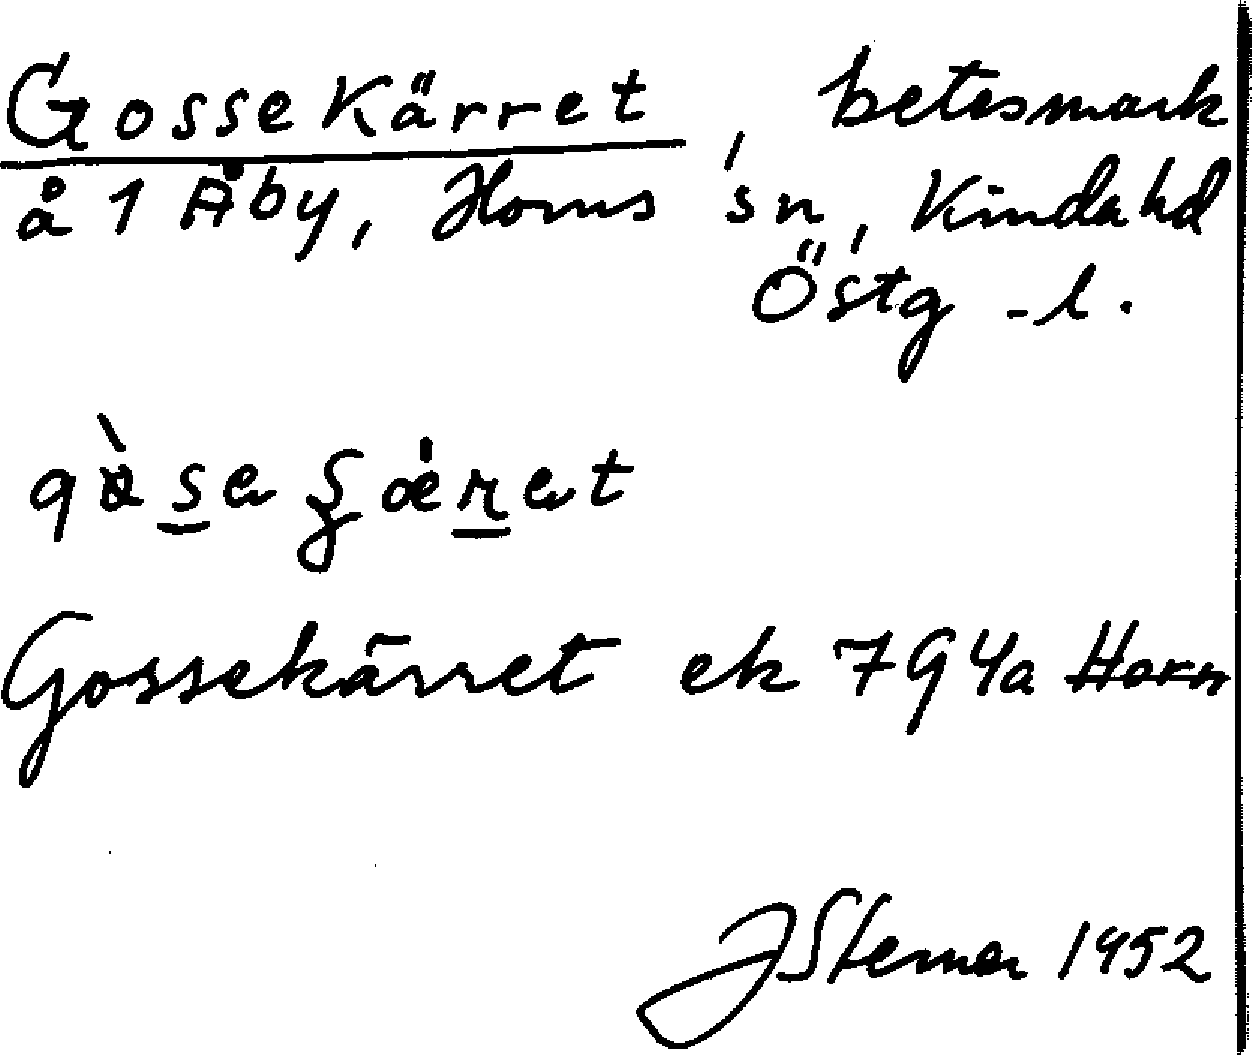 Gossekärret, betesmark
å 1 Åby, Horns sn, Kinda hd,
Östg -l.
Gossekärret ek 7G4a Horn
J Sterner 1952